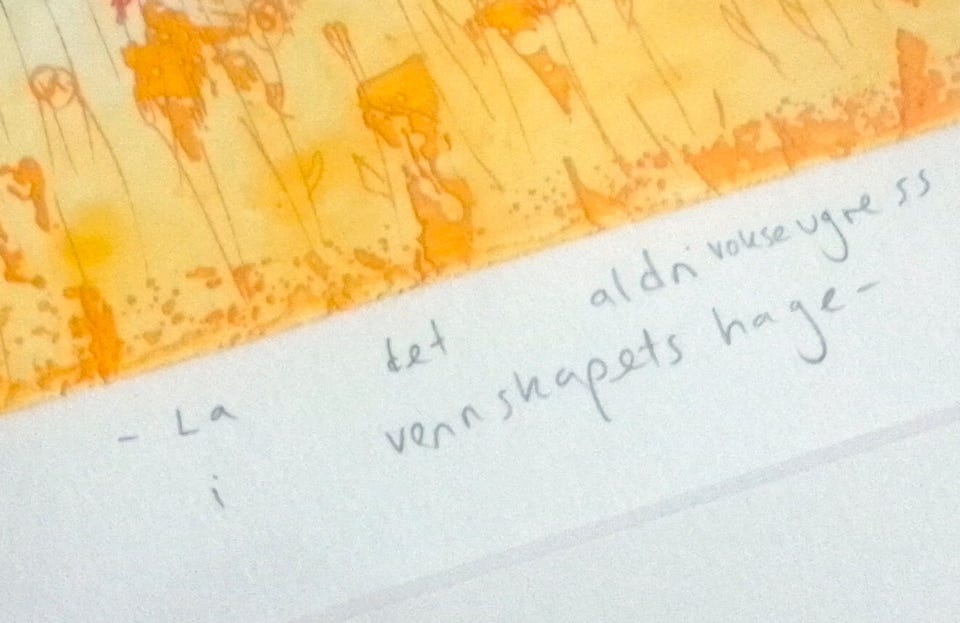 - La det aldri vokse ugress
i vennskapets hage -